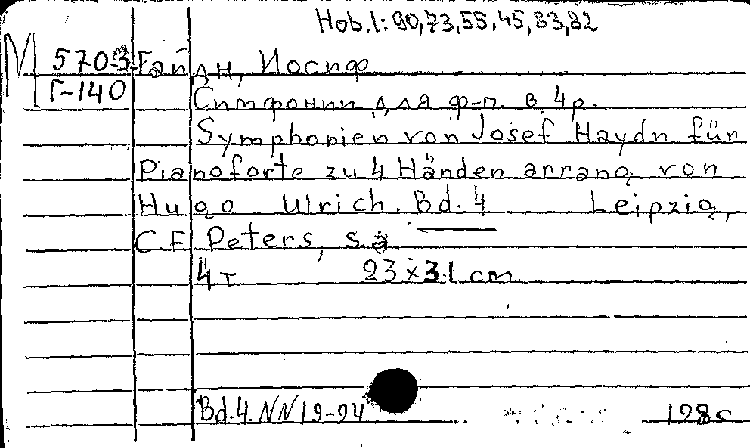 Hob.I: 90,73,55,45,83,82
М 5703 Гайдн, Иосиф
Г-140
Симфонии для ф-п. в 4 р.
Symphonien von Josef Haydn für
Pianoforte zu 4 Händen arrang. von
Hugo Ulrich. Bd. 4 Leipzig,
C.F. Peters, s.a
4 т 23x31 cm
Bd.4. NN 19-24